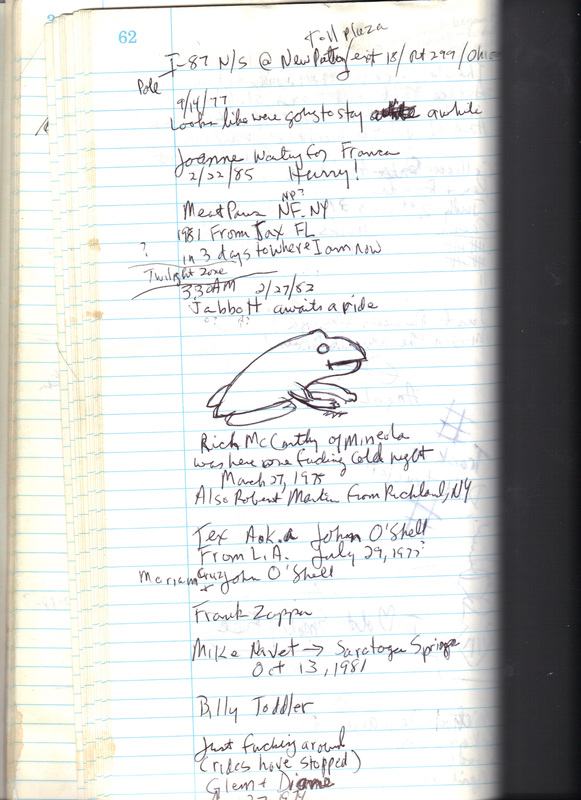 62
Toll plaza
I-87 N/S @ New Paltz/exit 18/Rt 299/Ohio
Pole
9/14/77
Looks like were going to stay awhile
Joanne Waiting for Franca
2/22/85 Hurry!
NP?
Meat Paws NF. NY
1981 From Jax FL
? in 3 days to where I am now
Twilight Zone
3:30 AM 2/27/82
Jabbott awaits a ride
Rick McCarthy of Mineola
was here one fucking cold night
March 27, 1975
Also Robert Martin from Richland, NY
Tex A.k.a John O'Shell
From L.A. July 29, 1977?
Mariam Cruz + John O'Shell
Frank Zappa
Mike Navet → Saratoga Springs
Oct 13, 1981
Billy Toddler
Just fucking around
(rides have stopped)
Glenn + Dianne